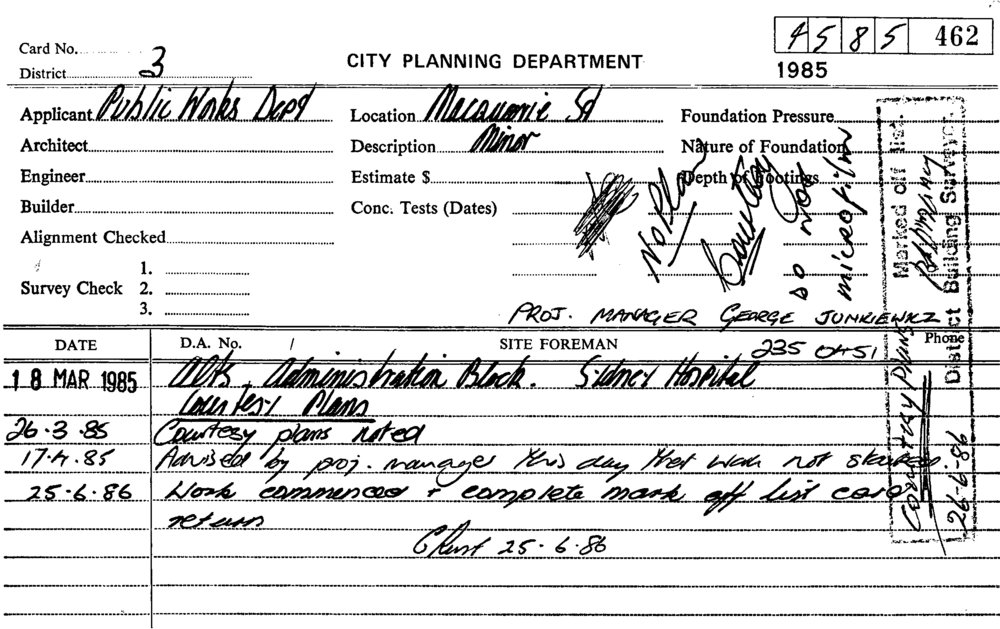 4 5 8 5 462
Card No.
CITY PLANNING DEPARTMENT
1985
District 3
Applicant Public Works Dept
Location Macquarie St
Foundation Pressure
Architect
Description Minor
Nature of Foundation
Engineer
Estimate $
Depth of Footings
Builder
Conc. Tests (Dates)
Alignment Checked
No Plan
Courtesy
DO NOT
microfilm
Survey Check
1.
2.
3.
PROJ. MANAGER GEORGE JUNKIEWICZ
235 0451
Phone
DATE
D.A. No.
SITE FOREMAN
18 MAR 1985
Alts, Administration Block. Sidney Hospital
Courtesy Plans
26-3-85 Courtesy plans noted
17-4-85 Advised by proj. manager this day that work not
25-6-86 Work commenced + complete mark off list card
return
25-6-86
Marked off list.
District Building Surveyor.
COURTESY PLANS
26-6-86